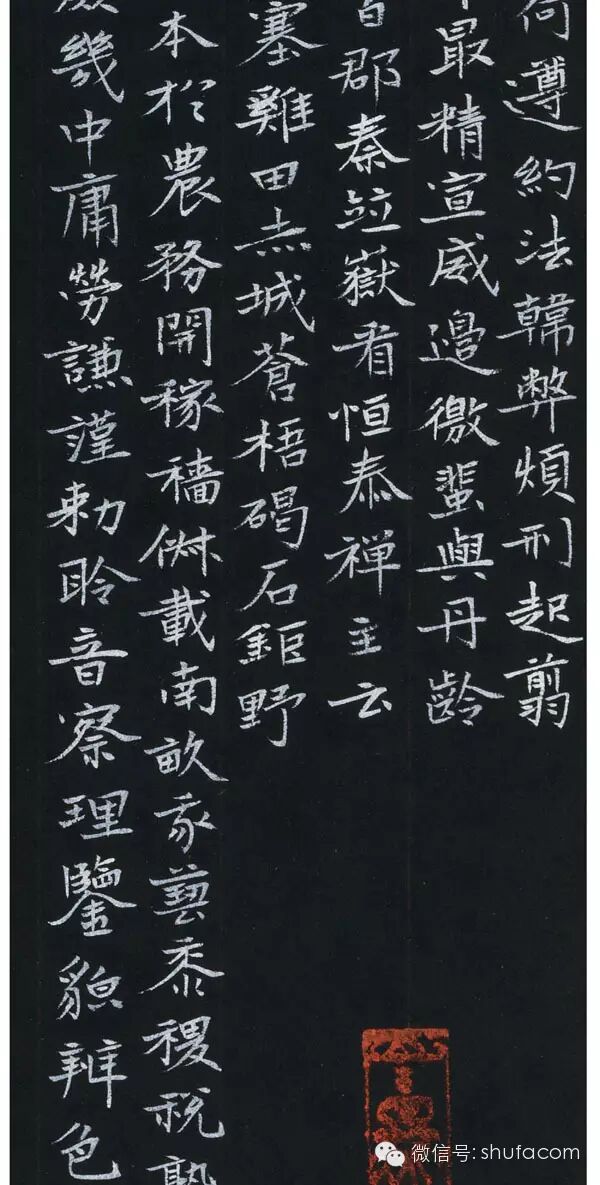 何遵約法韓弊煩刑起翦
最精宣威邊徼蜚與丹齡
百郡秦竝嶽看恒泰禪主云
塞雞田赤城蒼梧碣石鉅野
本於農務開稼穡俶載南畝我藝黍稷稅熟
幾中庸勞謙謹勅聆音察理鑒貌辨色
微信号: shufacom